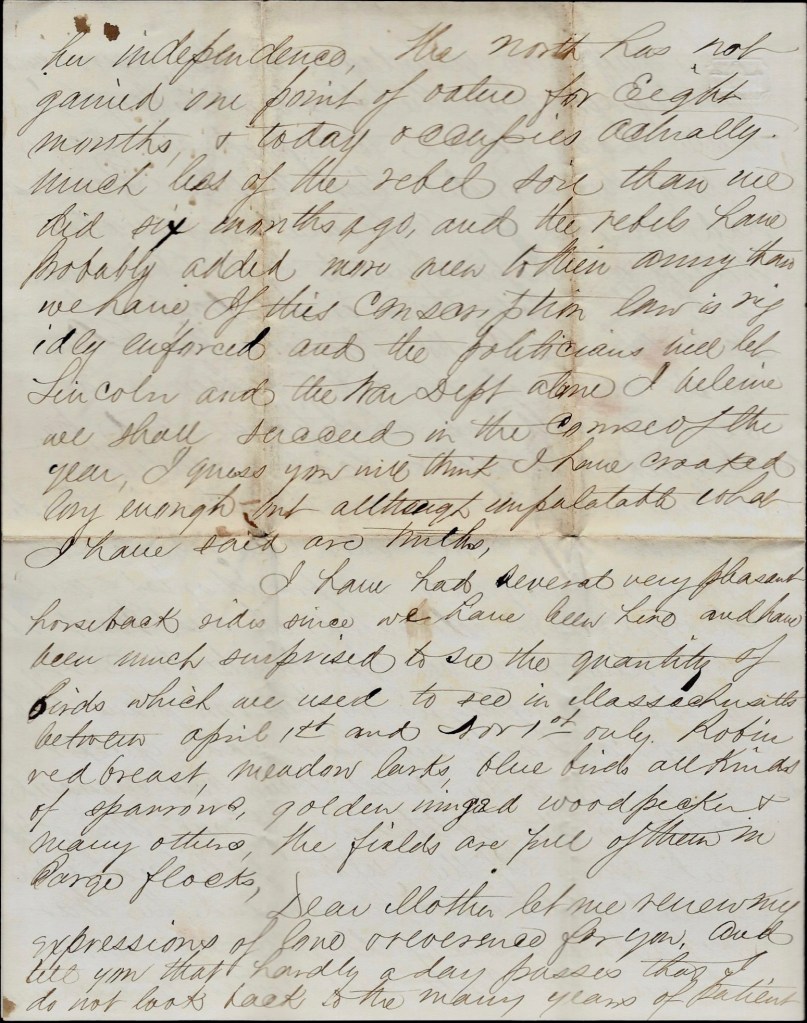 her independence, the north has not
gained one point of value for Eight
months, & today occupies actually.
much less of the rebel soil than we
did six months ago, and the rebels have
probably added more men to their army than
we have. If this Conscription law is rig
idly enforced and the politicians will let
Lincoln and the War Dept alone I believe
we shall succeed in the course of the
year, I guess you will think I have croaked
long enough but although unpalatable what
I have said are truths,
I have had several very pleasant
horseback rides since we have been here and have
been much surprised to see the quantity of
birds which we used to see in Massachusetts
between april 1st and Nov 1st only. Robin
red breast, meadow larks, blue birds all Kinds
of sparrows, golden winged woodpecker &
many others, the fields are full of them in
large flocks,
Dear Mother let me renew my
expressions of love & reverence for you, and
tell you that hardly a day passes that I
do not look back to the many years of patient